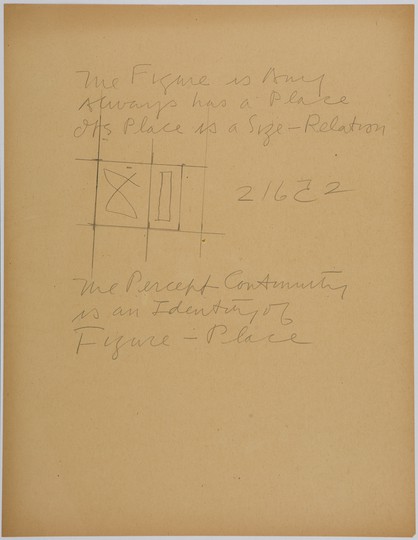 The Figure is Any
Always has a Place
Its Place is a Size-Relation
The Percept Continuity
is an Identity of
Figure - Place